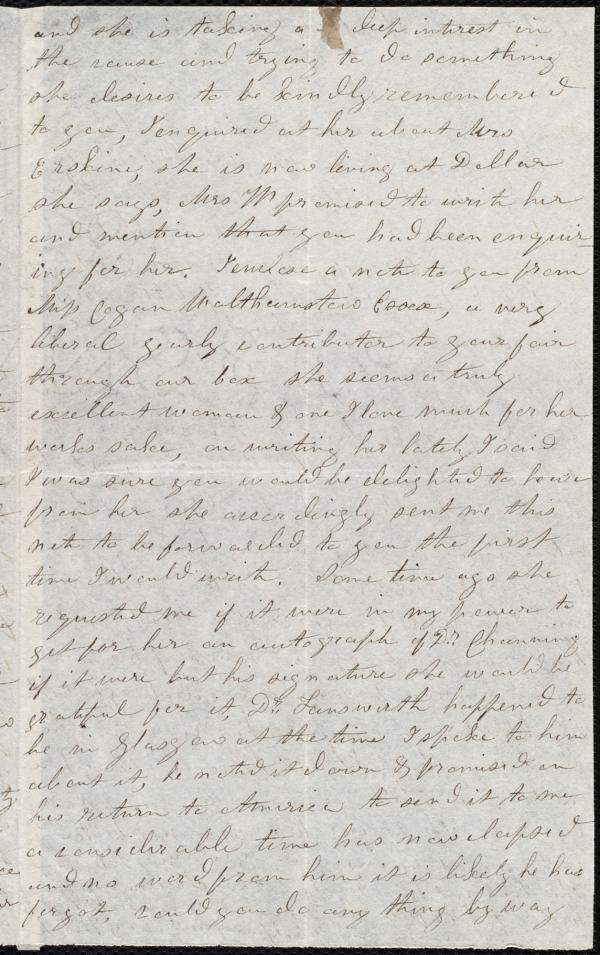 and she is taking a deep interest in
the cause and trying to do something
she desires to be kindly remembered
to you, I enquired at her about Mrs
Erskine, she is now living at Dollar
she says, Mrs M promised to write her
and mention that you had been enquir
ing for her. I enclose a note to you from
Miss Cogan Walthamstow Essex, a very
liberal yearly contributor to your fair
through our box she seems a truly
excellent woman & one I love much for her
works sake, on writing her lately I said
I was sure you would be delighted to hear
from her she accordingly sent me this
note to be forwarded to you the first
time I would write. Some time ago she
requested me if it were in my power to
get for her an autograph of Dr. Channing
if it were but his signature she would be
grateful for it, Dr. Farnsworth happened to
be in Glasgow at the time I spoke to him
about it, he noted it down & promised on
his return to America to send it to me
a considerable time has now elapsed
and no word from him it is likely he has
forgot, could you do any thing by way